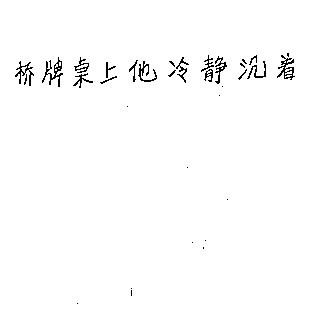 桥牌桌上他冷静沉着